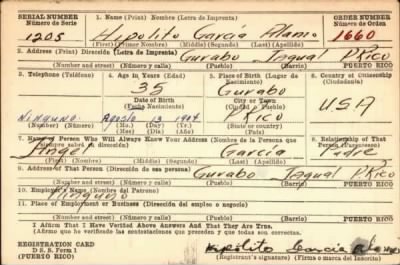 SERIAL NUMBER 1. Name (Print) Nombre (Letra de Imprenta) ORDER NUMBER
Número de Serie Número de Orden
1205 Hipolito García Alamo 1660
(First) Primer Nombre (Middle) (Segundo) (Last) (Apellido)
2. Address (Print) Dirección (Letra de Imprenta)
Gurabo P Rico
(Number and street) (Número y calle) (Town) (Pueblo) PUERTO RICO
3. Telephone (Teléfono) 4. Age in Years (Edad) 5. Place of Birth (Lugar de Nacimiento) 6. Country of Citizenship (Ciudadanía)
35 Gurabo
Date of Birth City or Town
(Fecha Nacimiento) (Ciudad o Pueblo) USA
Ninguno Agosto 13 1904 P Rico
(Number) (Número) (Mo.) (Mes) (Day) (Día) (Yr.) (Año) (State or country) (Estado o País)
7. Name of Person Who Will Always Know Your Address (Nombre de la Persona que siempre sabrá su dirección) 8. Relationship of That Person (Parentesco)
Angel García Padre
(First) (Nombre) (Middle) (Segundo) (Last) (Apellido)
9. Address of That Person (Dirección de esa persona)
Gurabo P Rico
(Number and street) (Número y calle) (Town) (Pueblo) PUERTO RICO
10. Employer's Name (Nombre del Patrono)
Ninguno
11. Place of Employment or Business (Dirección del empleo o negocio)
(Number and street) (Número y calle) (Town) (Pueblo) PUERTO RICO
I Affirm That I Have Verified Above Answers And That They Are True.
(Afirmo que he verificado las contestaciones que preceden y que todas son correctas.)
REGISTRATION CARD Hipólito García Alamo
D.S.S. Form 1 (Registrant's signature) (Firma o marca del Inscrito)
PUERTO RICO